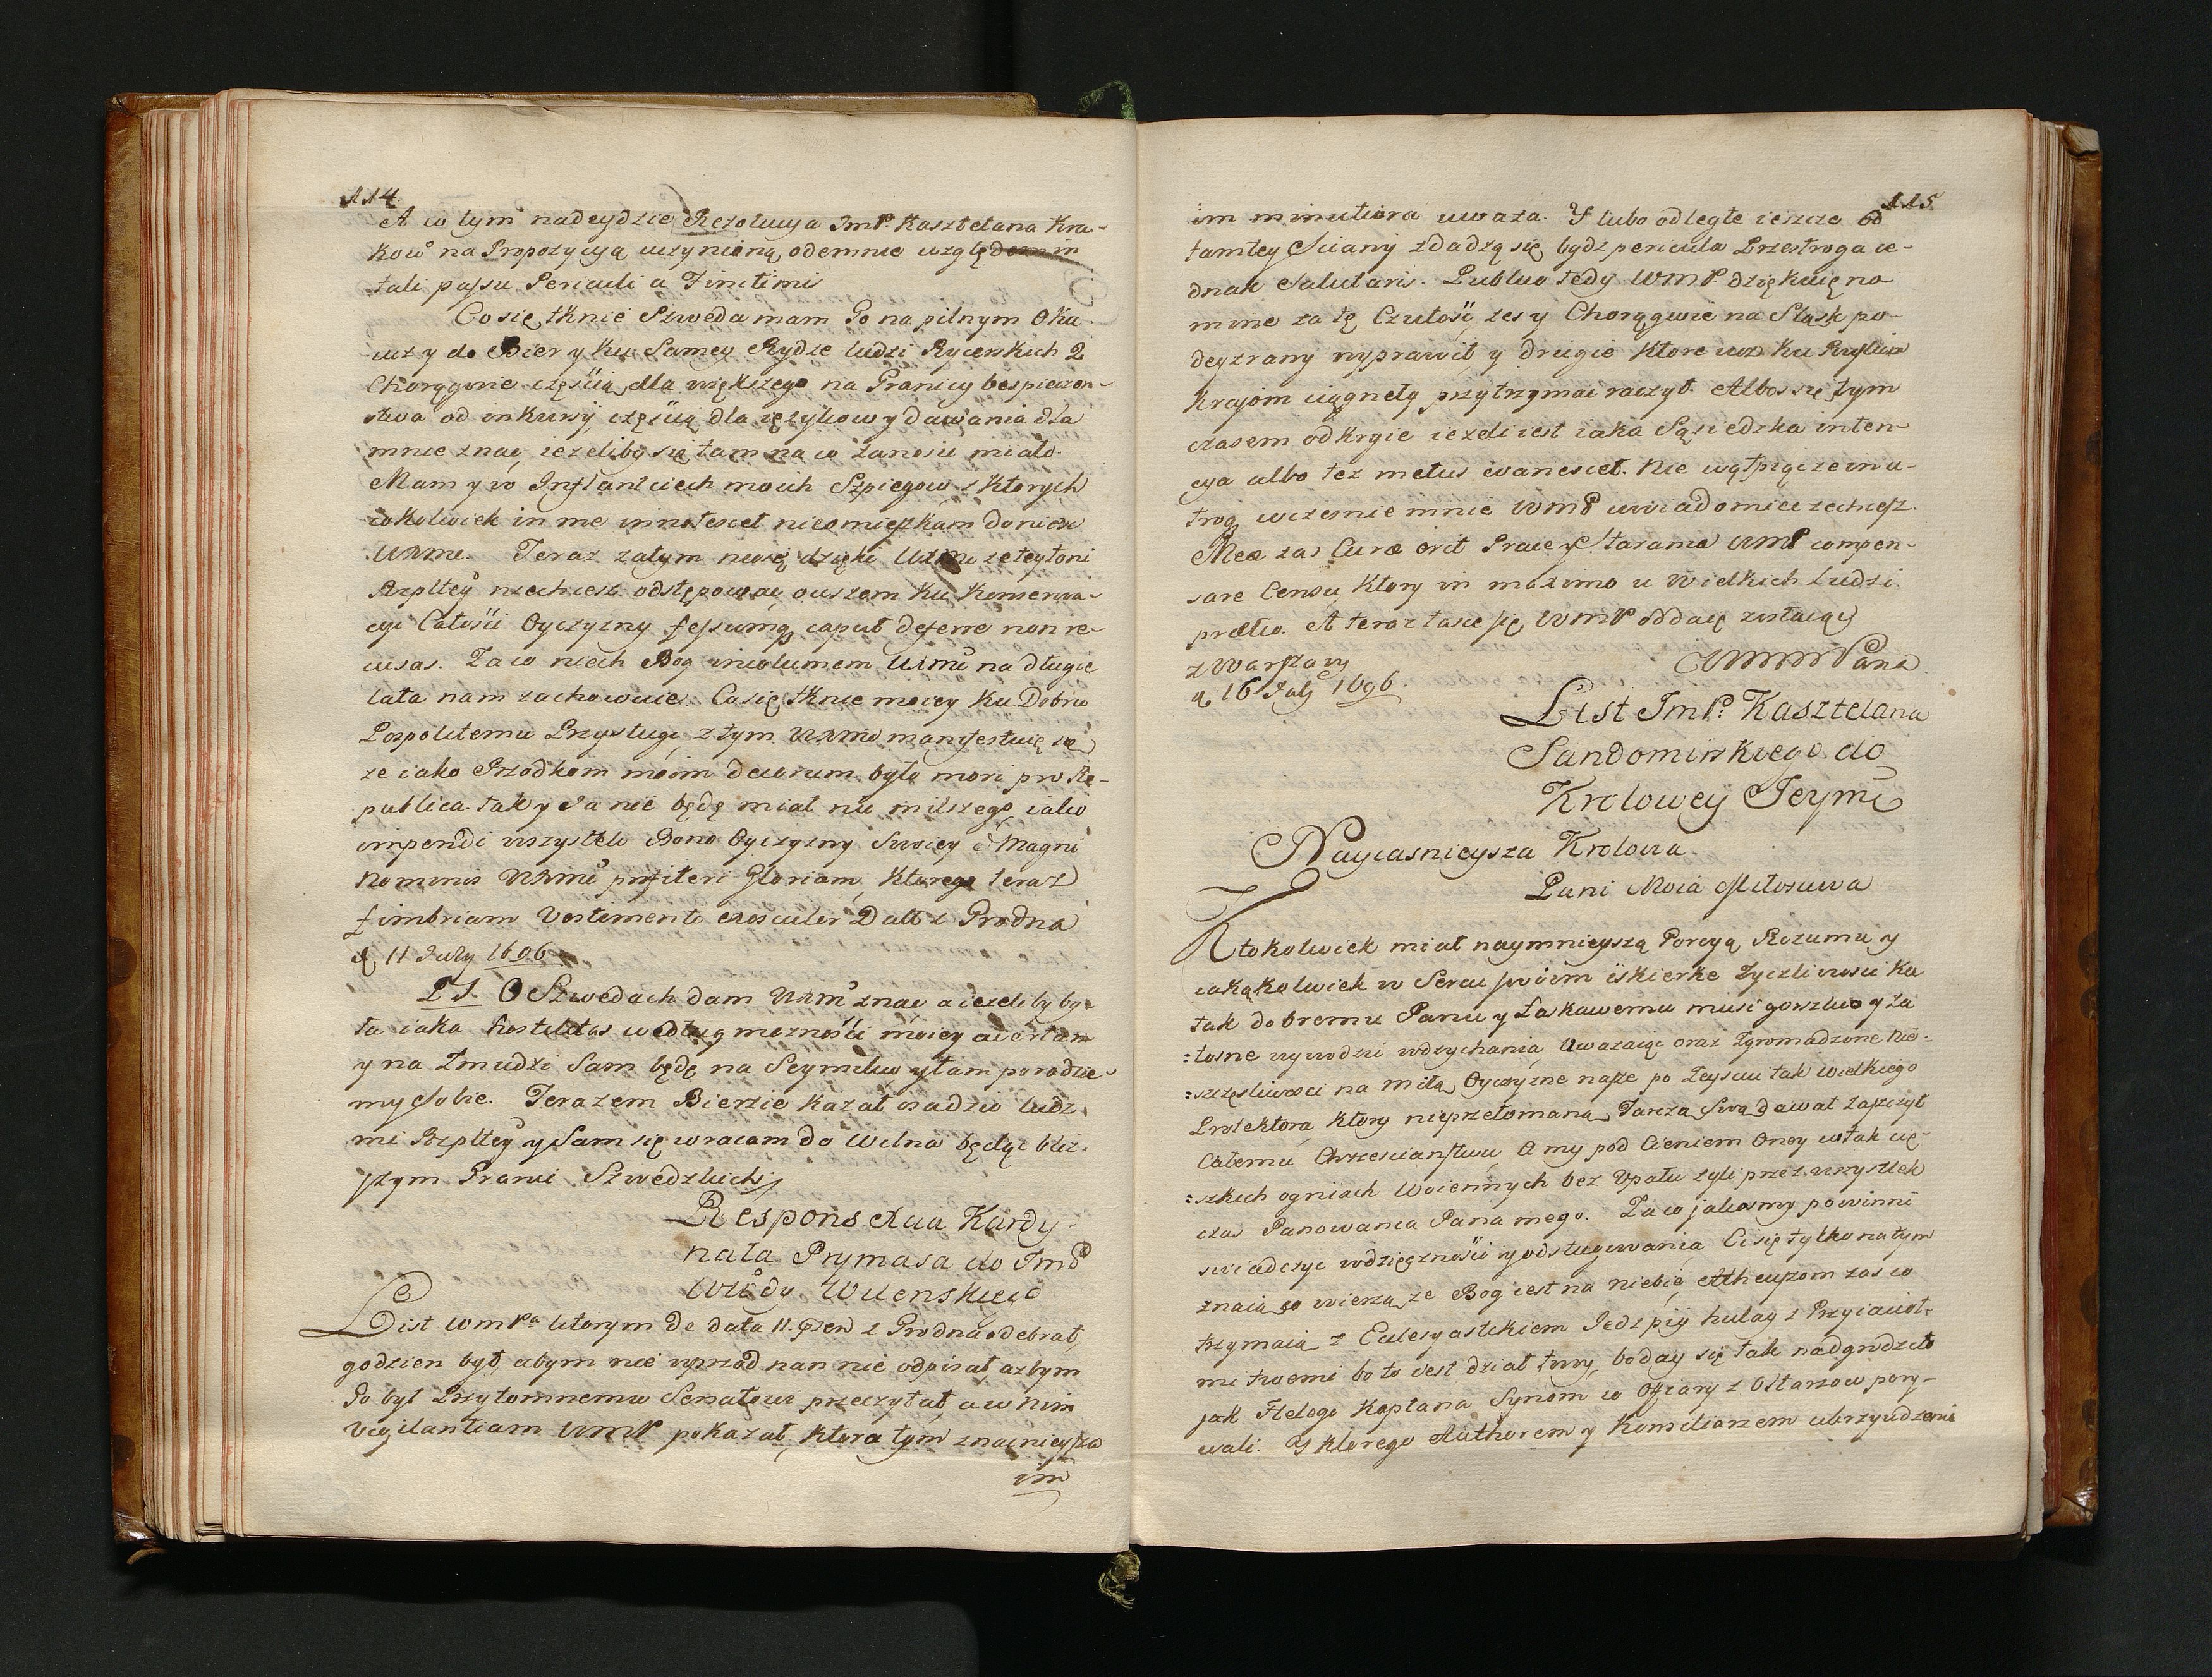 114.
A w tym nadeydzie Rezolucya Jmp. Kasztelana Kra-
kow na Propozycyą uczynioną odemnie względem in
tali passu Periculi a Finitimi
Co się tknie Szweda mam Go na pilnym Oku
iuz y do Bierz y ku Samey Rydze ludzi Rycerskich 2
Chorągwie częścią dla większego na Granicy bespieczen-
stwa od inkursij częścią dla ięzykow y dawania dla
mnie znac, iezeliby się tam na co zanosic miało.
Mam y w Inflanciech moich Szpiegow z ktorych
cokolwiek in me innotescet nieomieszkam donieść
WMM. Teraz zatym niosę dzięki WMM ze tey toni
Rzpltey niechcesz odstępować, owszem ku konserwa-
cyi Całości Oyczyzny fessumq caput deferre non re-
cusas. Za co niech Bog incolumem WMM na długie
lata nam zachowuie. Co się tknie moiey ku Dobru
Pospolitemu Przysługi, z tym WMM manifestuię się
ze iako Przodkom moim decorum było mori pro Re-
publica. tak y Ja nie będę miał nic milszego iako
impendi wszystko Bono Oyczyzny Swoiey et Magni
Nominis WMM profiteri Gloriam, Ktorego teraz
fimbriam Vestimenti exosculor Datt z Grodna
d, 11 July 1696
PS. O Szwedach dam WMM znac a iezeliby by-
ła iaka hostilitas według mozności moiey avertam
y na Zmudzi Sam będę na Seymiku y tam poradzie-
my sobie. Terazem Bierze kazał osadzic ludz-
mi Rzpltey y Sam się wracam do Wilna będąc bliz-
szym Granic Szwedzkich
Respons Xcia Kardy-
nała Prymasa do Jmp
Wdy. Wilenskiego
List WmPa ktorym de data 11. praesen z Grodna odebrał,
godzien był, abym nie wprzod nan nie odpisał, azbym
Go był Przytomnemu Senatowi przeczytał, a w nim
vigilantiam WMP pokazał, ktora tym znacnieysza
im
115
im minutiora uwaza. Y lubo odległe ieszcze od
tamtey Sciany zdadzą się bydz pericula Przestroga ie-
dnak Salutaris. Publico tedy WMP. dziękuię na
mnie za tę Czułość, zes y Chorągwie na Sląsk po-
deyzrany wyprawił, y drugie ktore iuz ku Ruskim
Krajom ciągnęły przytrzymac raczył. Albo się tym
czasem odkryie iezeli iest iaka Sąsiedzka inten-
cya albo tez metus evanescet. Nie wątpię ze in u-
troq wczesnie mnie WMP uwiadomic zechcesz.
Meæ zas Curæ erit Prace y Starania WMP compen-
sare Censu, ktory in maximo u Wielkich Ludzi
prætio. A teraz łasce się WMP oddaię zostaiąc
WMM Pana
z Warszawy
d, 16 July 1696.
List Jmp. Kasztelana
Sandomirskiego do
Krolowey Jeymci
Nayiasnieysza Krolowa
Pani Moia Miłosciwa
Ktokolwiek miał naymnieyszą Porcyą Rozumu y
iakąkolwiek w Sercu swoim iskierke Zyczliwosci Ku
tak dobremu Panu y Łaskawemu musi gorzko y za
:łosne wywodzic wdychania Uwazaiąc oraz Zgromadzone Nie-
:szczęsliwosci na miłą Oyczyzne nasze po Zeysciu tak wielkiego
Protektora ktory nieprzełomaną Tarczą Swą dawał Zaszczyt
Całemu Chrzescianstwu, a my pod Cieniem Oney w tak cię-
:szkich ogniach Woiennych bez Upału zyli przez wszystek
czas Panowania Pana mego. Za co jakosmy powinni
swiadczyc wdzięczności y odsługiwania Ci się tylko na tym
znaią co wierzą ze Bog iest na niebie, Atheuszom zas co
trzymaią z Eclesyastikiem Jedz pij hulay z Przyiacioł-
mi twemi bo to iest dział twoy, boday się tak nadgrodziło
jak Helego Kapłana Synom co Ofiary z Ołtarzow pory-
wali. Y ktorego Authorem y Konsiliarzem ubrzydzenia